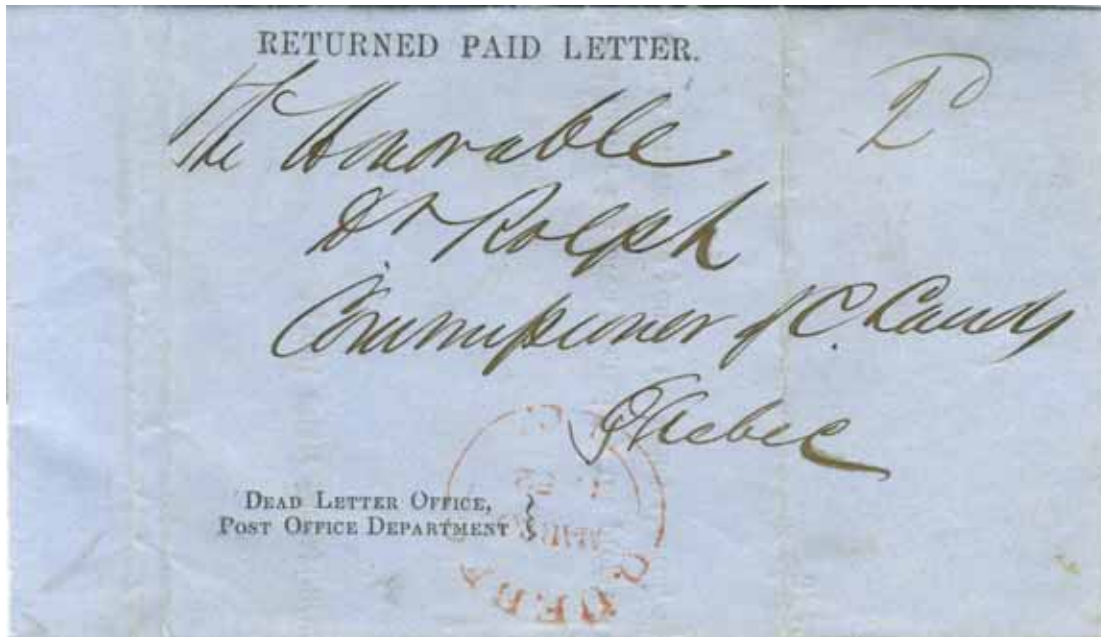 RETURNED PAID LETTER.
2D
The Honorable
Dr Rolph
Commissioner of C. Lands
Quebec
DEAD LETTER OFFICE,
POST OFFICE DEPARTMENT